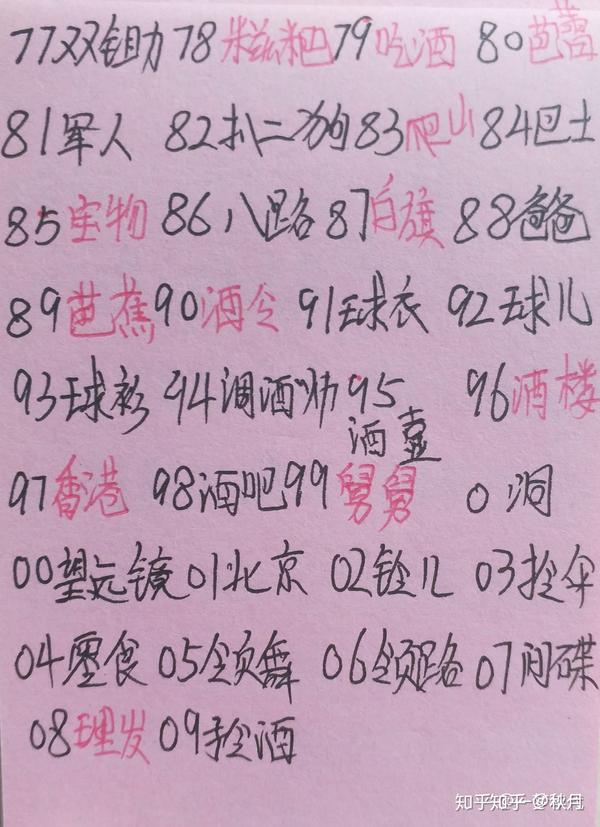 77双锄助 78糍粑 79吃酒 80芭蕾
81军人 82扒二狗 83爬山 84巴士
85宝物 86八路 87白旗 88爸爸
89芭蕉 90酒令 91球衣 92球儿
93球衫 94调酒师 95酒壶 96酒楼
97香港 98酒吧 99舅舅 0洞
00望远镜 01北京 02铃儿 03拎伞
04零食 05领舞 06领路 07间碟
08理发 09拎酒
知乎 @秋月